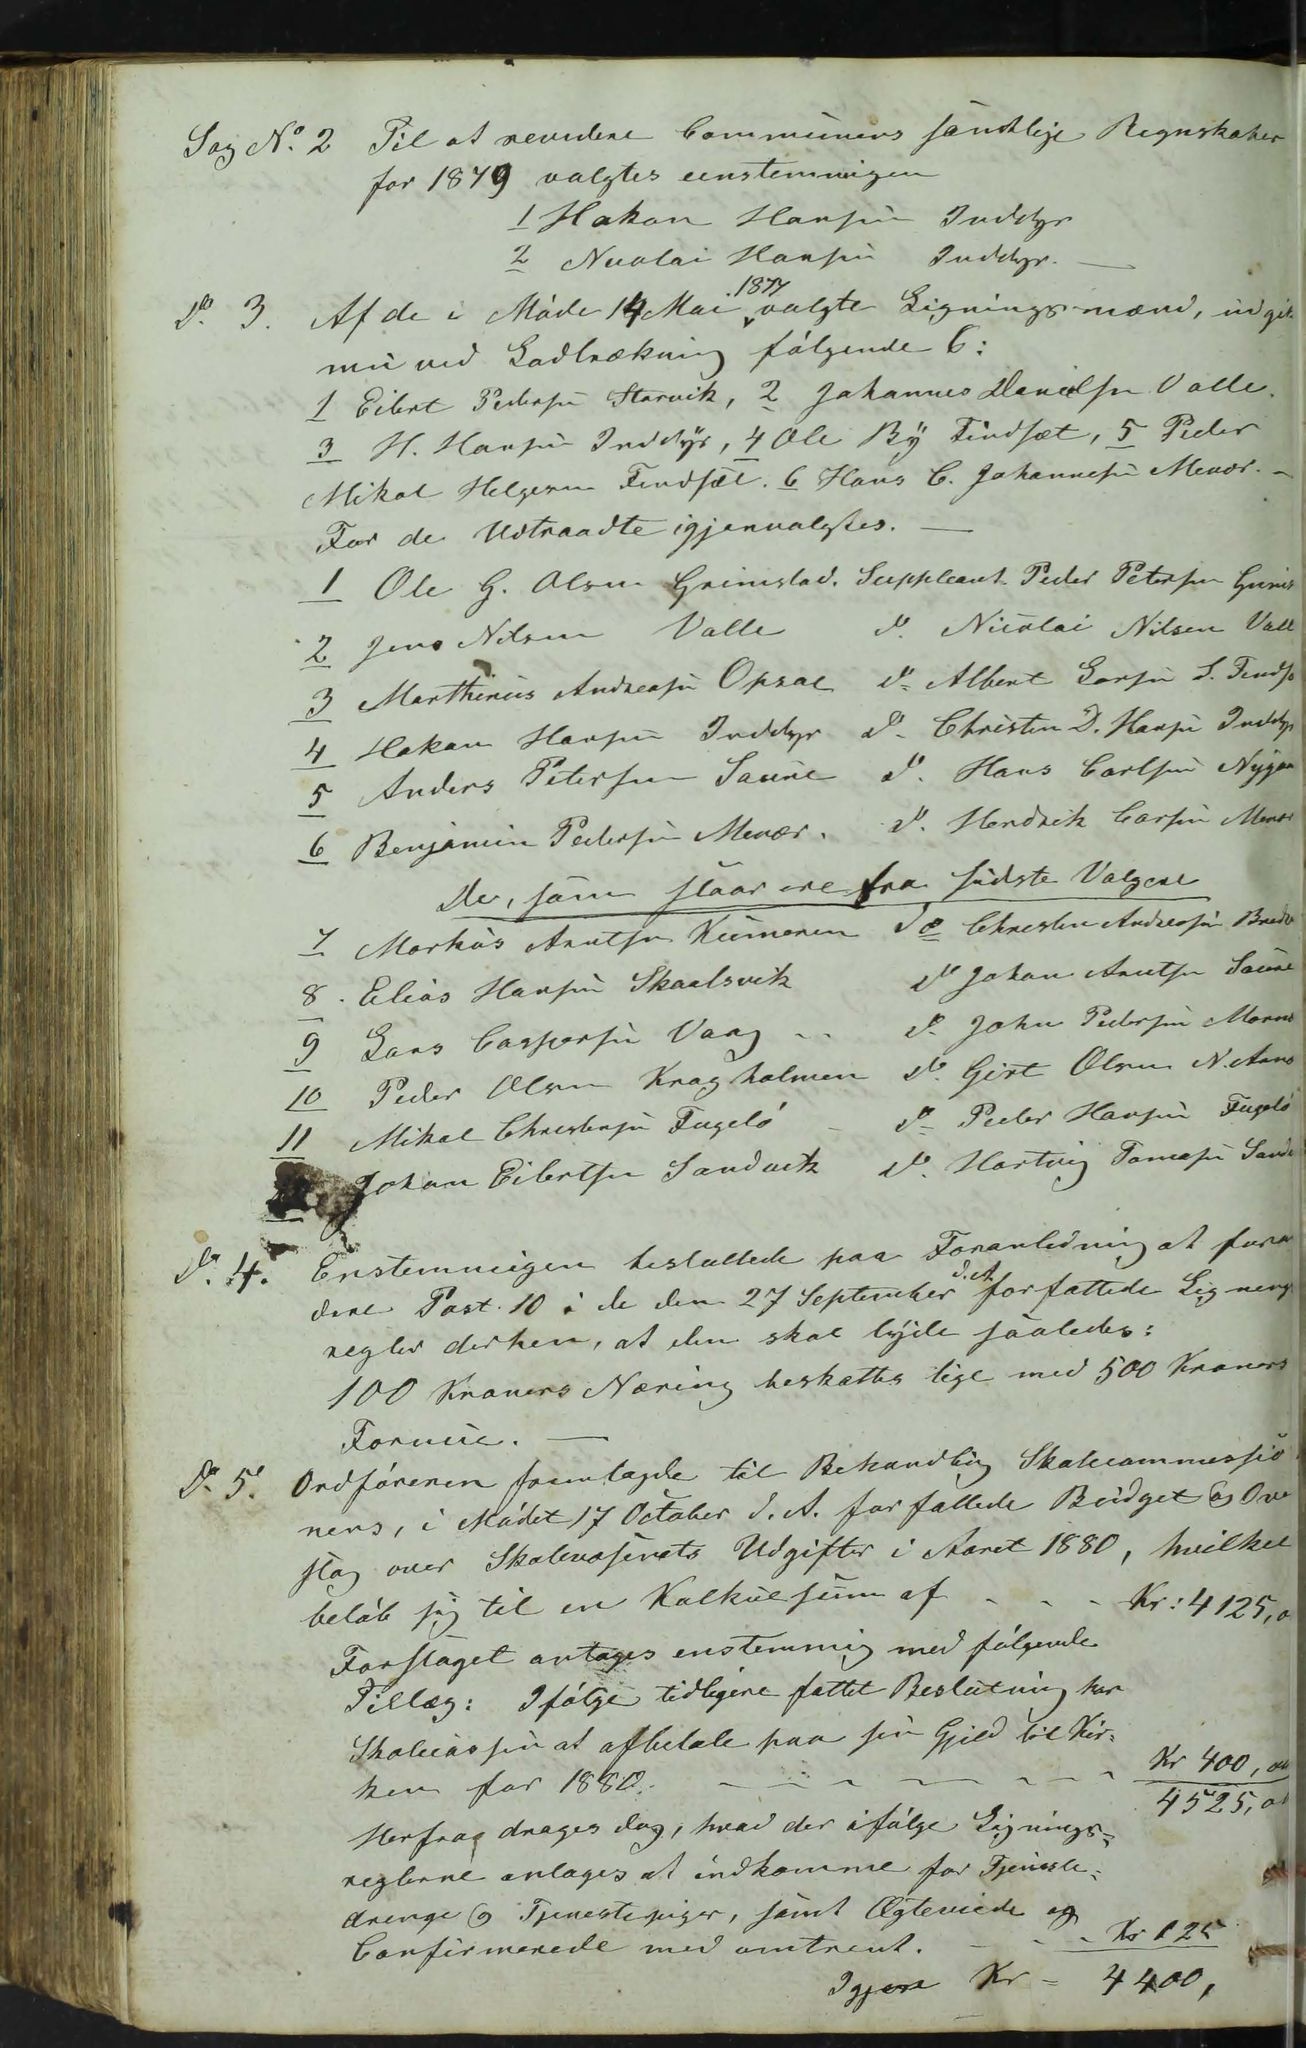 Sag No. 2 Til at revidere Communens samtlige Regnskaber
for 1879 valgtes eenstemmigen
1 Hakon Hansen Inddyr
2 Nicolai Hansen Inddyr. —
Do. 3. Af de i Møde 14 Mai 1877 valgte Ligningsmænd, udgik
nu ved Lodtrækning følgende 6:
1 Eilert Pedersen Storvik, 2 Johannes Danielsen Valle.
3 H. Hansen Inddyr, 4 Ole By Findsæt, 5 Peder
Mikal Helgesen Findsæt. 6 Hans C. Johannesen Mevær. —
For de Udtraadte igjenvalgtes. —
1 Ole G. Olsen Grimstad. Suppleant Peder Petersen Grims
2 Jens Nilsen Valle do. Nicolai Nilsen Vall
3 Marthinus Andreasen Opsal do. Albert Larsen S. Findsæ
4 Hakon Hansen Inddyr do. Christen D. Hansen Inddyr
5 Anders Petersen Saure do. Hans Carlsen Nygaa
6 Benjamin Pedersen Mevær. do. Hendrik Carsen Mevær
De, som staar ere fra sidste Valgene
7 Markus Arntsen Kumeren do Christen Andreasen Bred
8. Elias Hansen Skaalsvik do Johan Arntsen Saure
9 Lars Caspersen Vaag .. do. John Pedersen
10 Peder Olsen Kragholmen do. Gert Olsen N. Arno
11 Mikal Christensen Fugelø – do. Peder Hansen Fugelø
Johan Eilertsen Sandvik do. Hartvig Tomasen Sand
Do. 4. Enstemmigen besluttede paa Foranledning at foran
dere Post. 10 i de den 27 September d.A. forfattede Lignings
regler derhen, at den skal lyde saaledes:
100 Kroners Næring beskattes lige med 500 Kroners
Formue. —
Do. 5. Ordføreren fremlagde til Behandling Skolecommissio
nens, i Mødet 17 October d. A. forfattede Budget og Over
slag over Skolevæsenets Udgifter i Aaret 1880, hvilket
beløb sig til en Kalkulsum af - - - Kr: 4125,0
Forslaget antages enstemmig med følgende
Tillæg: Ifølge tidligere fattet Beslutning har
Skolekassen at afbetale paa sin Gjeld til Kir-
ken for 1880. - - - - - - Kr 400,00
4525,0
Herfra drages dog, hvad der ifølge Lignings-
reglerne antages at indkomme for Tjeneste-
drenge og Tjenestepiger, samt Ægteviede og
Confirmerede med omtrent. - - - Kr 125
Igjen Kr - 4400,